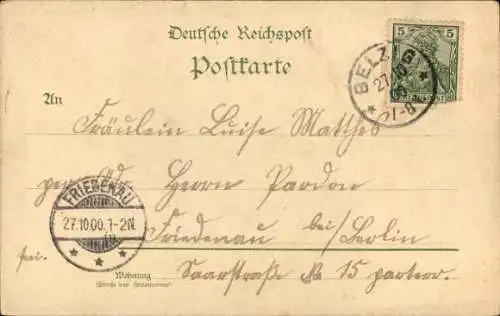 Deutsche Reichspost
Postkarte
5 5
BELZIG
27.10
7-8
An
Fräulein Luise Matthes
per Ad Herrn Pardon
FRIEDENAU
27.10.00.1-2N.
Friedenau bei/Berlin
frei.
Saarstraße No 15 parterr.
Wohnung
(Straße und Hausnummer)